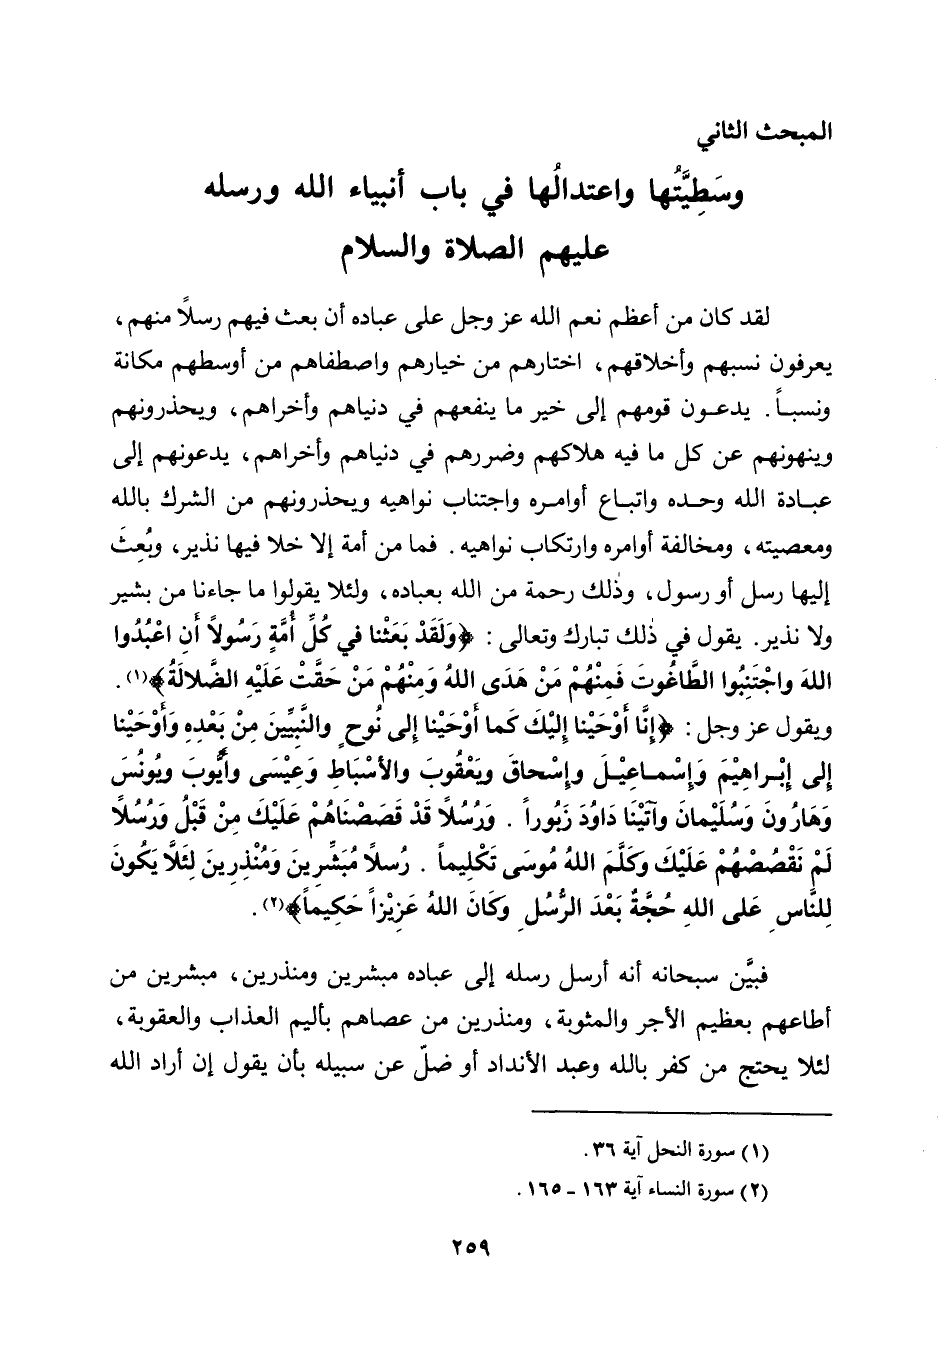 المبحث الثاني
وسَطِيَّتُها واعتدالُها في باب أنبياء الله ورسله
عليهم الصلاة والسلام
لقد كان من أعظم نعم الله عز وجل على عباده أن بعث فيهم رسلاً منهم،
يعرفون نسبهم وأخلاقهم، اختارهم من خيارهم واصطفاهم من أوسطهم مكانة
ونسبـاً. يدعـون قومهم إلى خير ما ينفعهم في دنياهم وأخراهم، ويحذرونهم
وينهونهم عن كل ما فيه هلاكهم وضررهم في دنياهم وأخراهم، يدعونهم إلى
عبـادة الله وحـده واتبـاع أوامـره واجتناب نواهيه ويحذرونهم من الشرك بالله
ومعصيته، ومخالفة أوامره وارتكاب نواهيه. فما من أمة إلا خلا فيها نذير، وبُعِثَ
إليها رسل أو رسول، وذٰلك رحمة من الله بعباده، ولئلا يقولوا ما جاءنا من بشير
ولا نذير. يقول في ذٰلك تبارك وتعالى: ﴿وَلَقَدْ بَعَثْنا في كُلِّ أُمَّةٍ رَسُولاً أَن اعْبُدُوا
اللهَ واجْتَنِبُوا الطَّاغُوتَ فَمِنْهُمْ مَنْ هَدَى اللهُ وَمِنْهُمْ مَنْ حَقَّتْ عَلَيْهِ الضَّلالَةُ﴾(١).
ويقول عز وجل: ﴿إِنَّا أَوْحَيْنا إِلَيْكَ كَما أَوْحَيْنا إلى نُوحٍ والنَّبِيِّينَ مِنْ بَعْدِهِ وَأَوْحَيْنا
إلى إِبْـراهِيْمَ وَإِسْمـاعِيْـلَ وإِسْحاقَ ويَعْقُوبَ والأَسْبَاطِ وَعِيْسَى وأَيُّوبَ ويُونُسَ
وَهَارُونَ وَسُلَيْمانَ وآتَيْنَا دَاوُدَ زَبُوراً . وَرُسُلاً قَدْ قَصَصْنَاهُمْ عَلَيْكَ مِنْ قَبْلُ وَرُسُلاً
لَمْ نَقْصُصْهُمْ عَلَيْكَ وَكَلَّمَ اللهُ مُوسَى تَكْلِيماً . رُسلاً مُبَشِّرِينَ وَمُنْذِرِينَ لِئَلَّا يَكُونَ
لِلنَّاسِ عَلى اللهِ حُجَّةٌ بَعْدَ الرُّسُلِ وَكَانَ اللهُ عَزِيْزاً حَكِيماً﴾(٢).
فبيَّن سبحانه أنه أرسل رسله إلى عباده مبشرين ومنذرين، مبشرين من
أطاعهم بعظيم الأجر والمثوبة، ومنذرين من عصاهم بأليم العذاب والعقوبة،
لئلا يحتج من كفر بالله وعبد الأنداد أو ضلّ عن سبيله بأن يقول إن أراد الله
(١) سورة النحل آية ٣٦.
(٢) سورة النساء آية ١٦٣ - ١٦٥.
٢٥٩